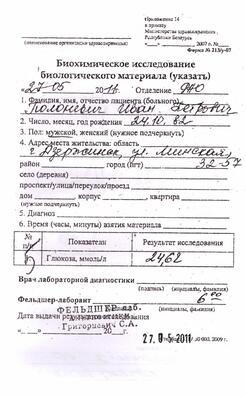 Приложение 14
к приказу
Министерства здравоохранения
Республики Беларусь
2007 г. №
(наименование организации здравоохранения)
Форма № 213/у-07
Биохимическое исследование
биологического материала (указать)
«27» 05 2011 Отделение
1. Фамилия, имя, отчество пациента (больного)
Иван Петрович
2. Число, месяц, год рождения 24.10.82
3. Пол: мужской, женский (нужное подчеркнуть)
4. Адрес места жительства: область
г. Дзержинск, ул. Минская,
район город (пгт) 32-57
село (деревня)
проспект/улица/переулок/проезд
дом , корпус , квартира
(нужное подчеркнуть)
5. Диагноз
6. Время (часы, минуты) взятия материала
№ п/п Показатели Результат исследования
1 Глюкоза, ммоль/л 24,62
Врач лабораторной диагностики
(подпись) (инициалы, фамилия)
Фельдшер-лаборант
ФЕЛЬДШЕР-лаб.
(инициалы, фамилия)
Дата выдачи
Григорович С.А.
20 г.
27. 05 2011
2009 г.